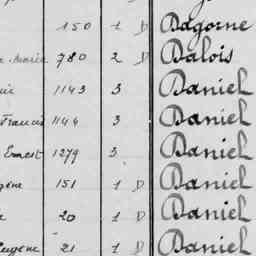 150 1 D Dagorne
Marie 780 2 D Dalois
1143 3 Daniel
Francis 1144 3 Daniel
Ernest 1279 3 Daniel
151 1 D Daniel
20 1 D Daniel
Eugène 21 1 D Daniel